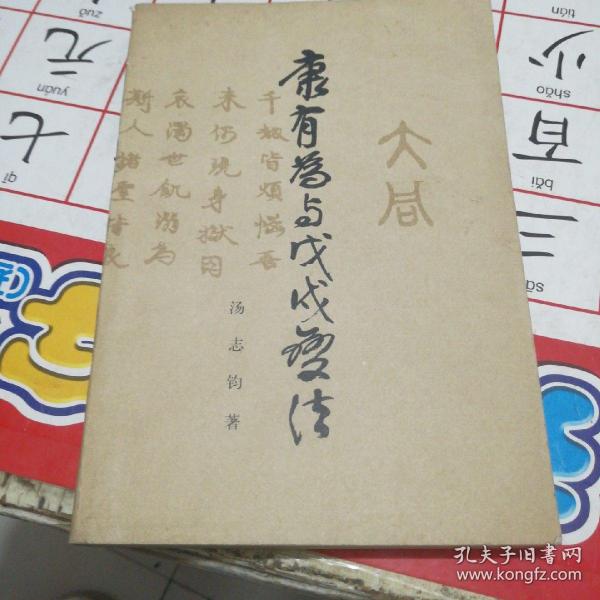 康有为与戊戌变法
汤志钧著
大同
千劫皆烦恼吾
来仍现身狱囚
哀浊世饥溺为
斯人诸圣皆良
zuǒ
元
yuán
七
qī
tián
少
shǎo
百
bǎi
三
sān
孔夫子旧书网
www.kongfz.com